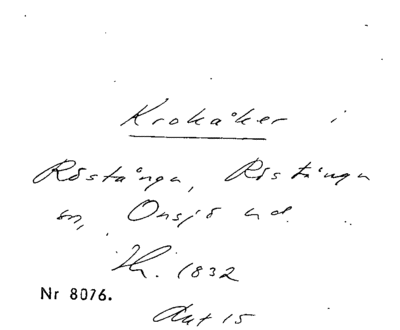 Krokåker i
Röstånga, Röstånga
sn, Onsjö hd.
Th. 1832
Nr 8076.
Aut 15